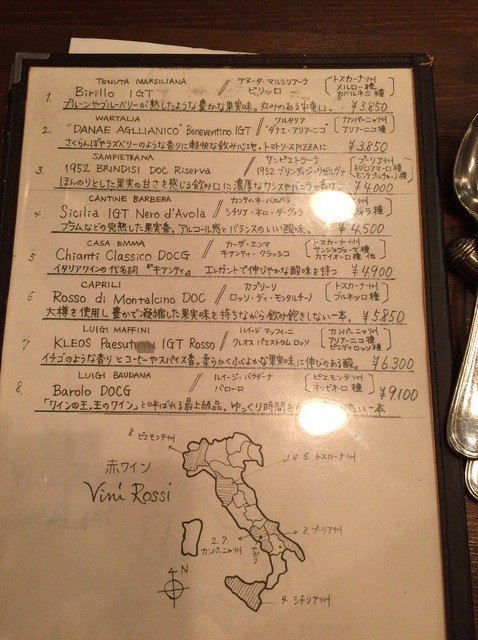 TENUTA MARSILIANA / テヌータ・マルシリアーナ [トスカーナ州
1. Birillo IGT ビリッロ メルロー種 カベルネS種]
プルーンやブルーベリーが熟したような豊かな果実味。丸みのある中重口。 ¥3,850
WARTALIA / ワルタリア [カンパーニャ州
2. "DANAE AGLLIANICO" Beneventino IGT "ダナエ・アリアーニコ" アリアーニコ種]
さくらんぼやラズベリーのような香りに軽快な飲み心地。トマトソースPIZZAに ¥3,850
SAMPIETRANA / サンピエトラーナ [プーリア州
3. 1952 BRINDISI DOC Riserva 1952 ブリンディシ・リゼルヴァ ネグロアマーロ種
ほんのりとした果実の甘さを感じる飲み口に濃厚なカシスやバニラ ¥4,000
CANTINE BARBERA / カンティーネ・バルベラ
4. Sicilia IGT Nero d'Avola シチリア・ネロ・ダーヴォラ
プラムなどの完熟した果実香。アルコール感とバランスのいい酸味。 ¥4,500
CASA EMMA / カーザ・エンマ [トスカーナ州
5. Chianti Classico DOCG キアンティ・クラシコ サンジョヴェーゼ種 カナイオーロ種 他]
イタリアワインの代名詞『キアンティ』 エレガントで伸びやかな酸味を持つ ¥4,900
CAPRILI / カプリーリ [トスカーナ州
6 Rosso di Montalcino DOC ロッソ・ディ・モンタルチーノ ブルネッロ種]
大樽を使用し豊かで凝縮した果実味を持ちながら飲み飽きしない一本。 ¥5,850
LUIGI MAFFINI / ルイージ・マッフィーニ [カンパーニャ州
7 KLEOS Paesutum IGT Rosso クレオス パエストゥム ロッソ アリアーニコ種 ピエディロッソ種]
イチゴのような香りとコーヒーやスパイス香。柔らかくふくよかな果実味に伸びのある酸。 ¥6,300
LUIGI BAUDANA / ルイージ・バウダーナ [ピエモンテ州
8. Barolo DOCG バローロ ネッビオーロ種]
「ワインの王、王のワイン」と呼ばれる最上級品。ゆっくり時間を たい一本 ¥9,100
8. ピエモンテ州
赤ワイン
Vini Rossi
1.4 5. トスカーナ州
3. プーリア州
2.7. カンパーニャ州
N
4. シチリア州